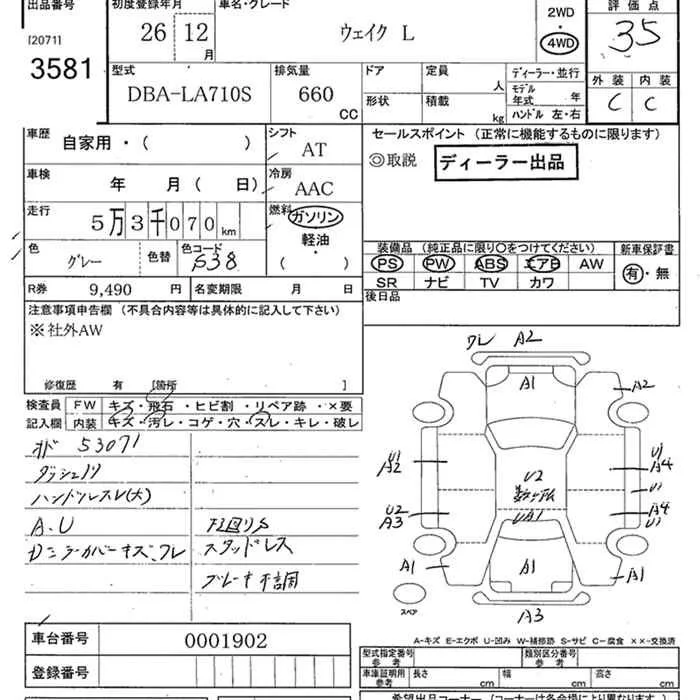 出品番号 初度登録年月 車名・グレード 2WD 評価点
[2071] 26 12 月 ウェイク L 4WD 35
3581
型式 排気量 ドア 定員 人 ディーラー・並行 外装 内装
DBA-LA710S 660 CC 形状 積載 kg モデル年式 年 C C
ハンドル 左・右
車歴 自家用・( ) シフト AT セールスポイント (正常に機能するものに限ります)
◎取説 ディーラー出品
車検 年 月 ( 日) 冷房 AAC
走行 5万3千070km 燃料 ガソリン・軽油・( )
色 グレー 色替 色コード S38
装備品 (純正品に限り○をつけてください) 新車保証書
PS PW ABS エアB AW 有・無
SR ナビ TV カワ
R券 9,490 円 名変期限 月 日 後日品
注意事項申告欄 (不具合内容等は具体的に記入して下さい)
※社外AW
修復歴 有 [箇所 ]
検査員記入欄 FW キズ・飛石・ヒビ割・リペア跡・×要
内装 キズ・汚レ・コゲ・穴・スレ・キレ・破レ
53071
ハンドルスレ(大)
A.U 下回りS
スタッドレス
ブレーキ不調
A2
A1
A2
U1 A2
U1 A4
U2
U1
U2 A3
A4 U1
UA1
A1 A1 A1
スペア A3
A-キズ E-エクボ U-凹み W-補修跡 S-サビ C-腐食 ××-交換済
車台番号 0001902
登録番号
型式指定番号 参考 類別区分番号 参考
車庫証明用 参考 長さ cm 幅 cm 高さ cm
希望出品コーナー (コーナーは各会場により異なります)